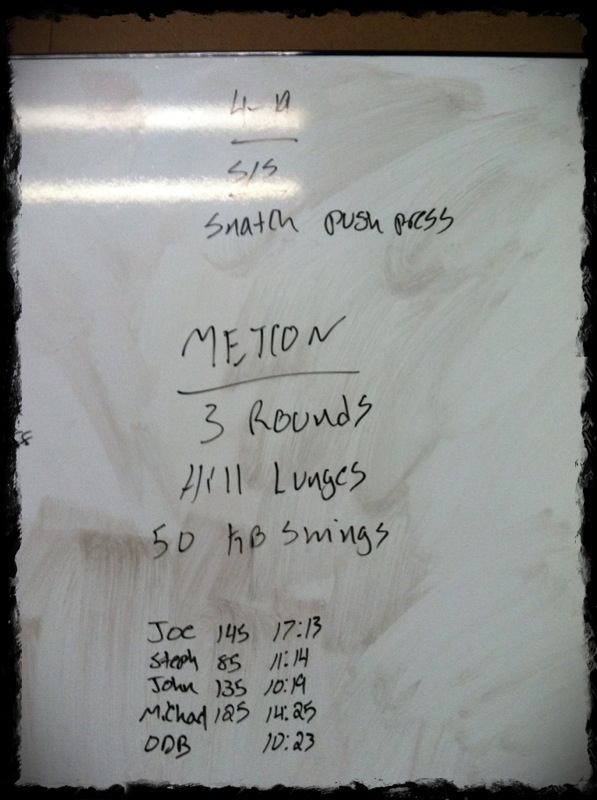 4-19
S/S
Snatch push press
METCON
3 Rounds
Hill Lunges
50 KB Swings
Joe 145 17:13
Steph 85 11:14
John 135 10:19
Michael 125 14:25
ODB 10:23